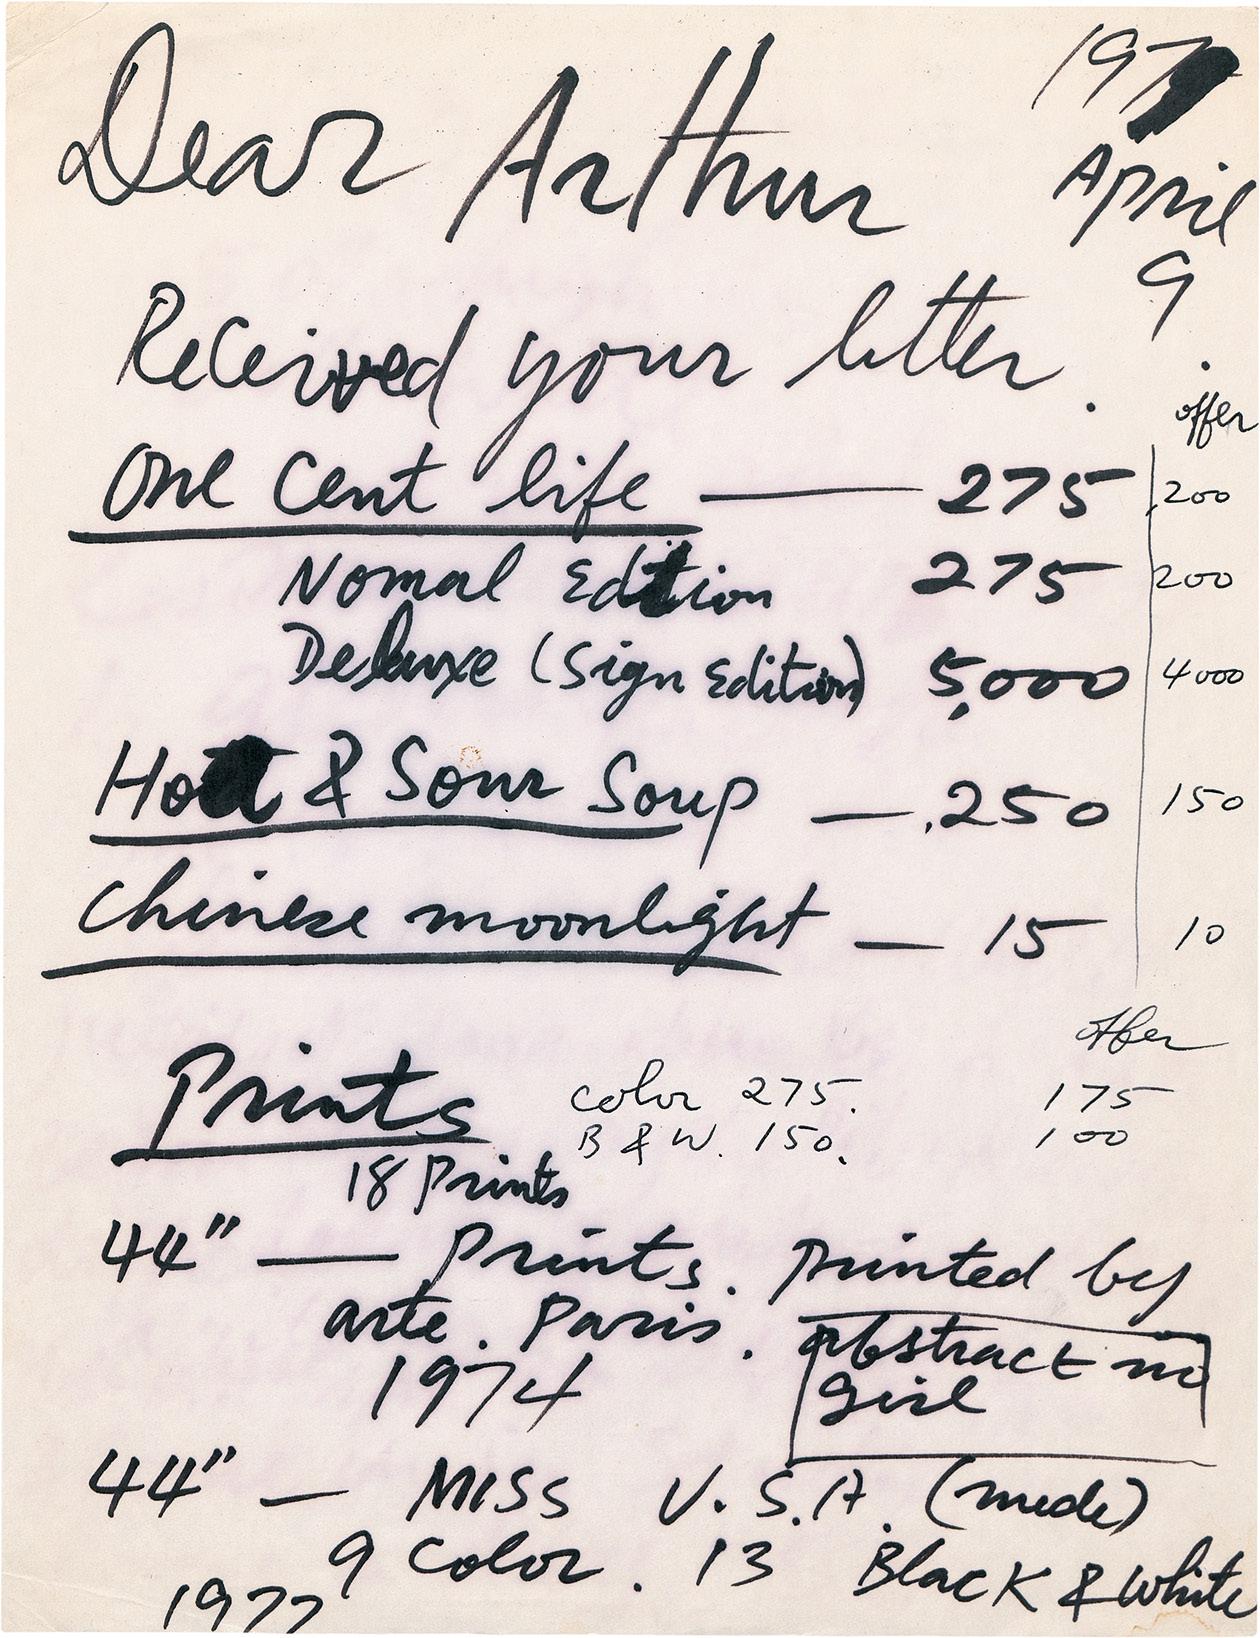 Dear Arthur
197
April
9.
Received your letter.
offer
One Cent life — 275 200
Nomal Edition 275 200
Deluxe (Sign Edition) 5,000 4000
Hot & Sour Soup — .250 150
Chinese moonlight — 15 10
offer
Prints color 275. 175
B & W. 150. 100
18 Prints
44" — Prints. Printed by
arte. Paris. abstract no
1974 girl
44" — MISS U.S.A. (nude)
9 Color. 13 Black & White
1977